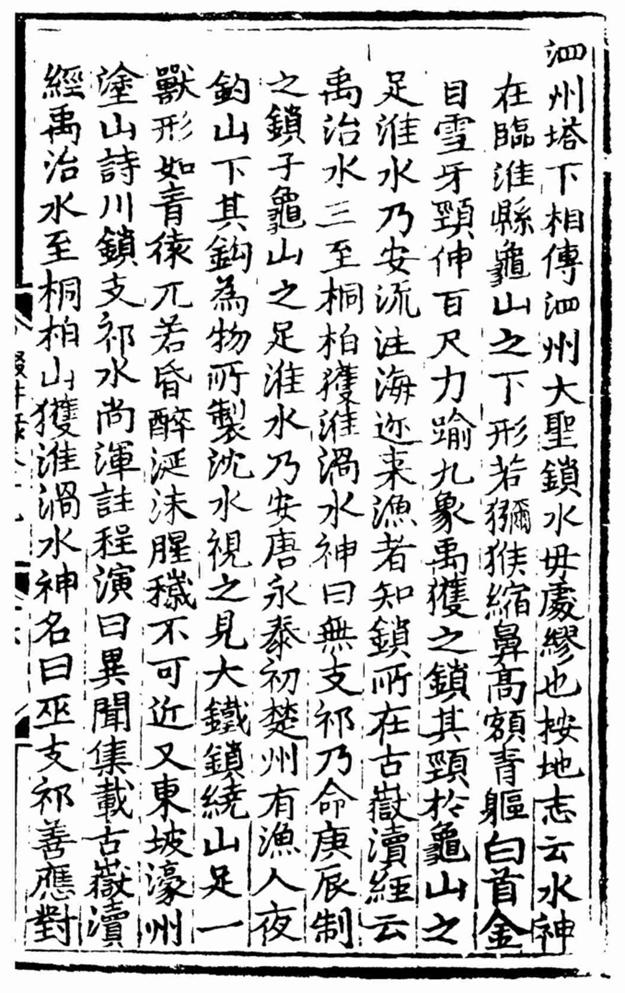 泗州塔下相傳泗州大聖鎖水毋處繆也按地志云水神
在臨淮縣龜山之下形若獼猴縮鼻高額青軀白首金
目雪牙頸伸百尺力踰九象禹獲之鎖其頸於龜山之
足淮水乃安流注海迩来漁者知鎖所在古嶽瀆經云
禹治水三至桐柏獲淮渦水神曰無支祁乃命庚辰制
之鎖于龜山之足淮水乃安唐永泰初楚州有漁人夜
釣山下其鈎為物所製沈水視之見大鐵鎖繞山足一
獸形如青猿兀若昏醉涎沫腥穢不可近又東坡濠州
塗山詩川鎖支祁水尚渾註程演曰異聞集載古嶽瀆
經禹治水至桐柏山獲淮渦水神名曰巫支祁善應對